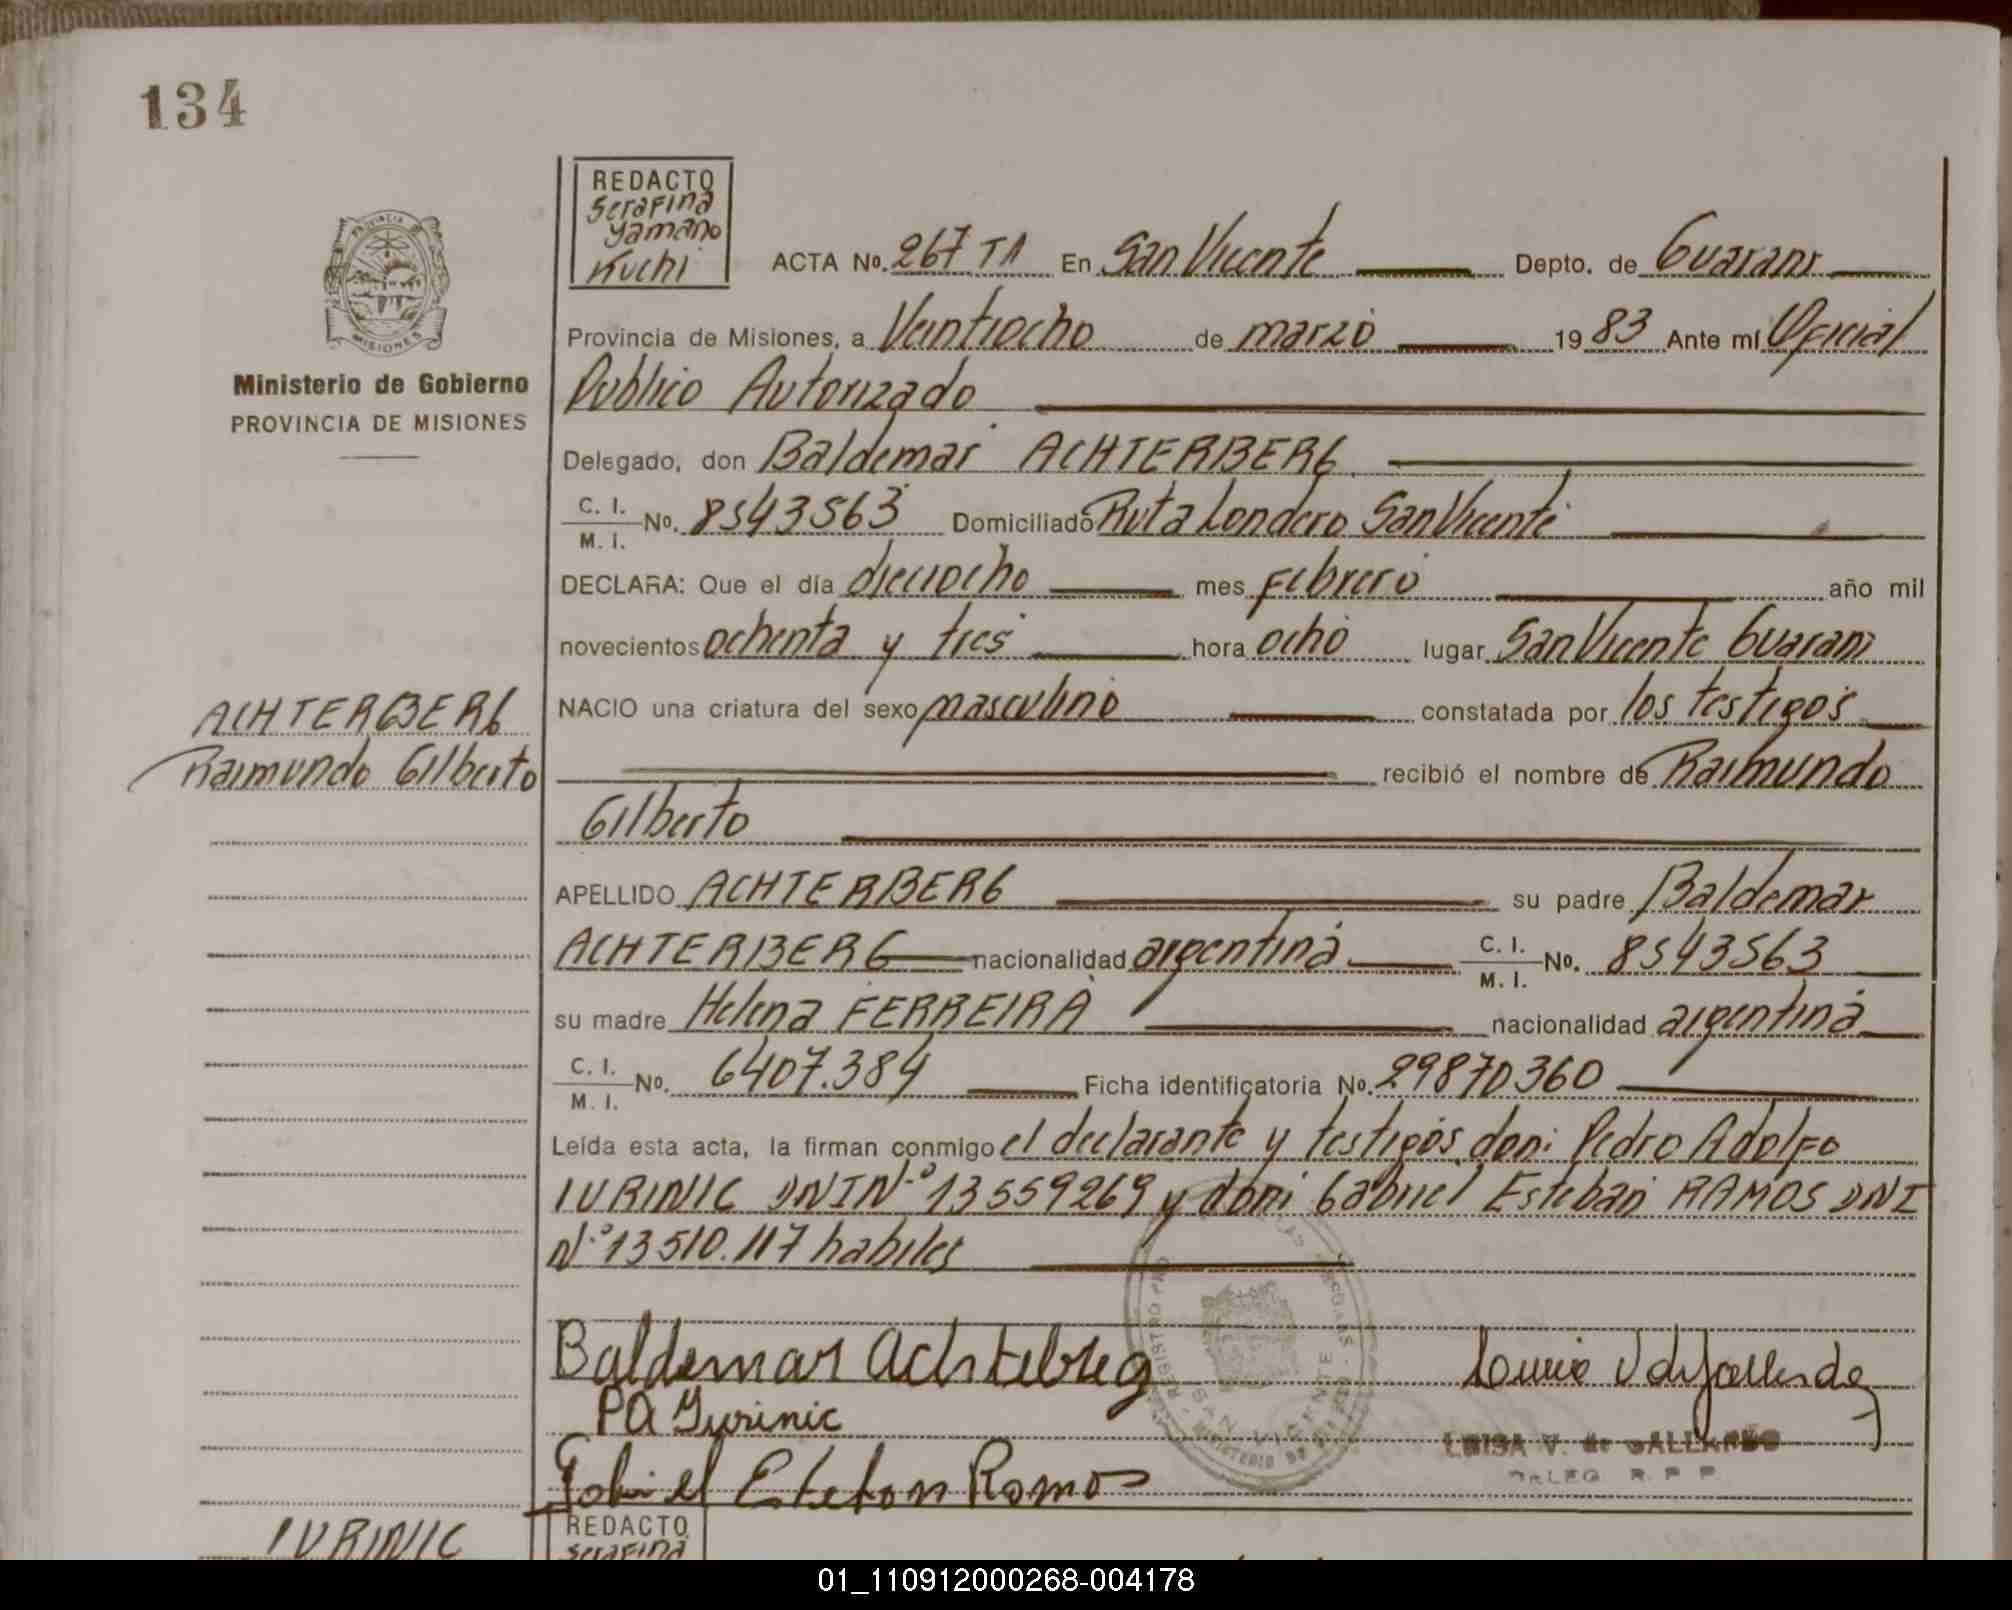 134
REDACTO
Serafina
Yamaño
Kuchi
ACTA No. 267 TA En San Vicente Depto. de Guarani
PROVINCIA DE
MISIONES
Provincia de Misiones, a Veintiocho de marzo 1983 Ante mí Oficial
Ministerio de Gobierno
PROVINCIA DE MISIONES
Publico Autorizado
Delegado, don Baldemar ACHTERBERG
C. I.
M. I. No. 8543563 Domiciliado Ruta Londero San Vicente
DECLARA: Que el día dieciocho mes Febrero año mil
novecientos ochenta y tres hora ocho lugar San Vicente Guarani
ACHTERBERG
Raimundo Gilberto
NACIO una criatura del sexo masculino constatada por los testigos
recibió el nombre de Raimundo
Gilberto
APELLIDO ACHTERBERG su padre Baldemar
ACHTERBERG nacionalidad argentina C. I.
M. I. No. 8543563
su madre Helena FERREIRA nacionalidad argentina
C. I.
M. I. No. 6407.384 Ficha identificatoria No. 29870360
Leída esta acta, la firman conmigo el declarante y testigos don: Pedro Adolfo
IURINIC DNI N° 13559269 y don: Gabriel Esteban RAMOS DNI
N° 13510.117 habiles
Baldemar Achtebreg
PA Iurinic
Gabriel Esteban Ramos
SAN VICENTE
LUISA V. de GALLARDO
DELEG. R. P. P.
IURINIC
REDACTO
Serafina
01_110912000268-004178